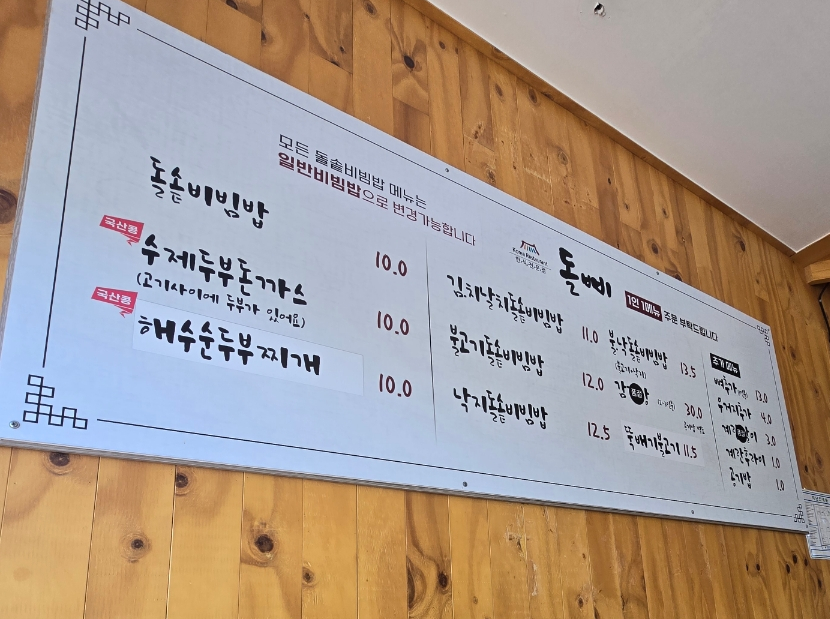 모든 돌솥비빔밥 메뉴는
일반비빔밥으로 변경가능합니다
돌솥비빔밥 10.0
국산콩
수제두부돈까스 10.0
(고기사이에 두부가 있어요)
국산콩
해수순두부찌개 10.0
Korea Restaurant
한식전문점
돌삐
1인 1메뉴 주문 부탁드립니다
김치날치돌솥비빔밥 11.0
불고기돌솥비빔밥 12.0
낙지돌솥비빔밥 12.5
불낙돌솥비빔밥 13.5
(불고기+낙지)
품절
30.0
뚝배기불고기 11.5
추가 메뉴
13.0
우거지추가 4.0
3.0
계란후라이 1.0
공기밥 1.0